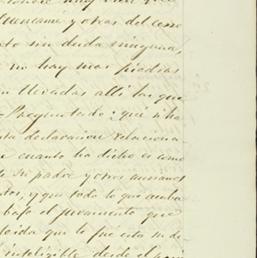 muy
y otras del cerro
to sin duda ninguna,
no hay mas piedras
llevadas alli las que
Preguntado: que si ha
declaracion relaciona
cuanto ha dicho es como
su padre y otros ancianos
y que todo lo que acaba
bajo el juramento que
leida que le fue esta su de
inteligible desde el